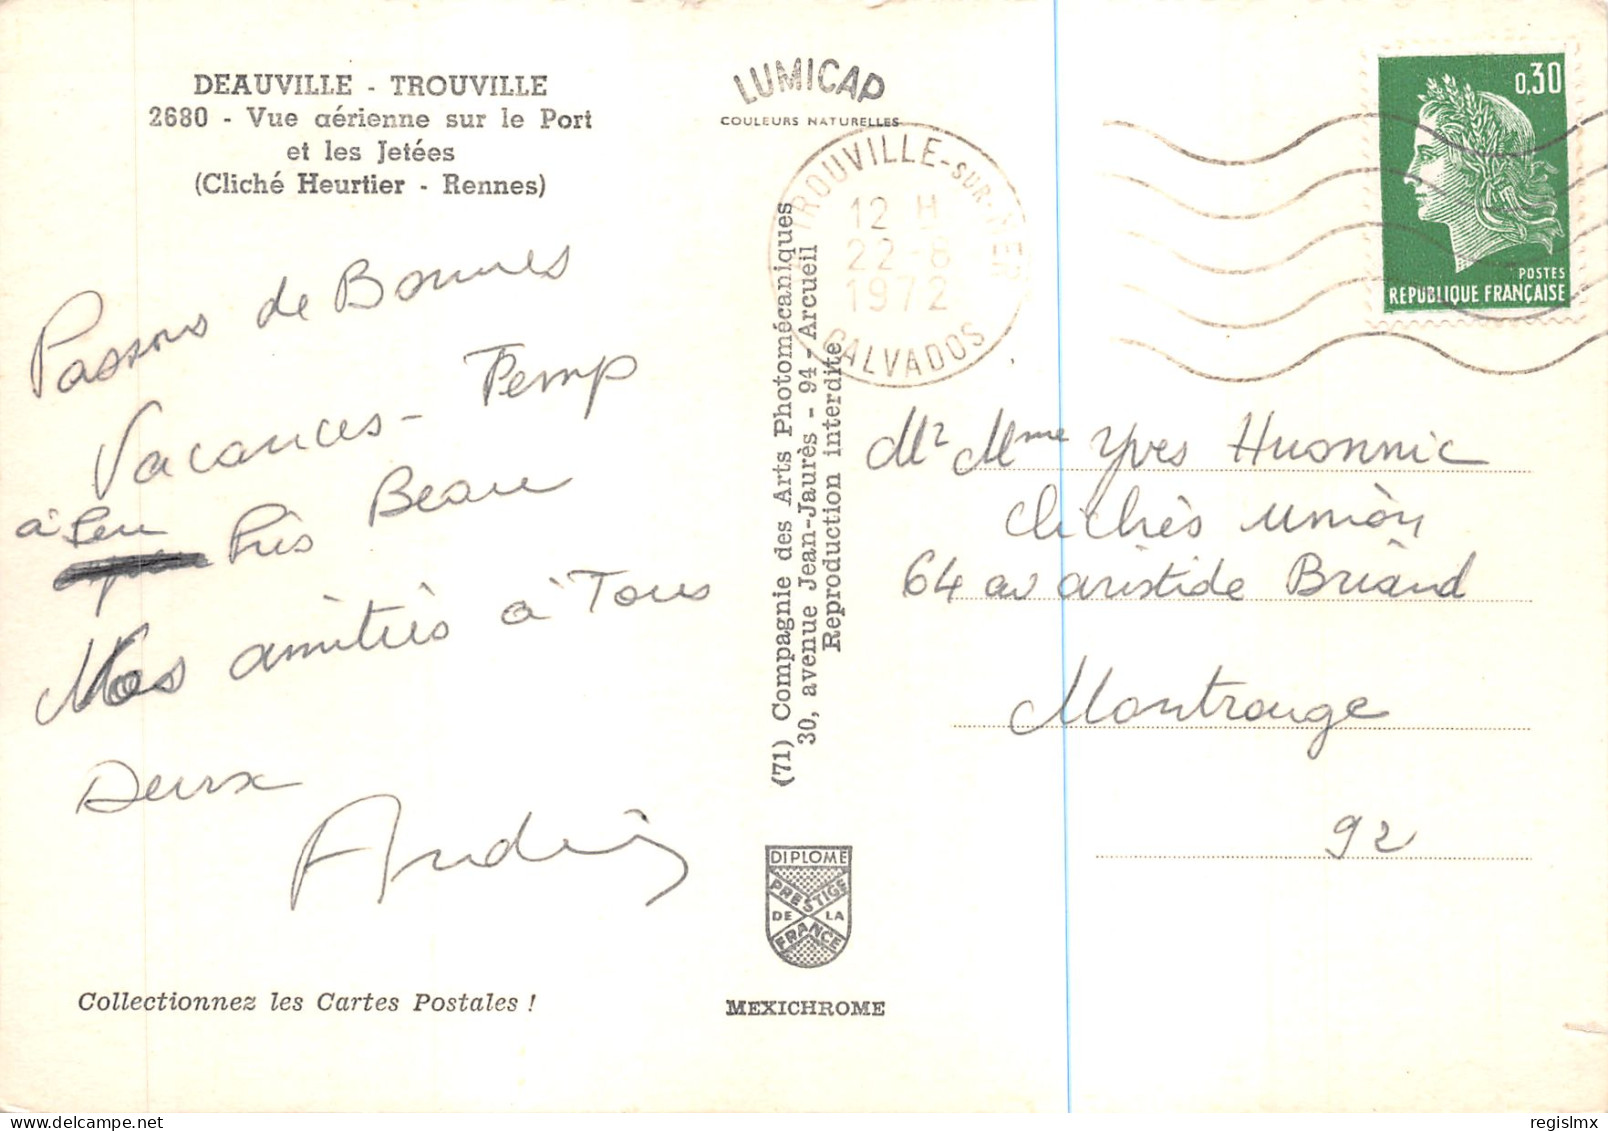 DEAUVILLE - TROUVILLE
2680 - Vue aérienne sur le Port
et les Jetées
(Cliché Heurtier - Rennes)
Passons de Bonnes
Vacances - Temp
à Peu Près Beau
Mes amitiés à Tous
Deux
André
Collectionnez les Cartes Postales !
LUMICAP
COULEURS NATURELLES
(71) Compagnie des Arts Photomécaniques
30, avenue Jean-Jaurès - 94 - Arcueil
Reproduction interdite
DIPLOME
PRESTIGE
DE LA
FRANCE
MEXICHROME
TROUVILLE-SUR-MER
12 H
22-8
1972
CALVADOS
0,30
POSTES
REPUBLIQUE FRANÇAISE
Mr Mme Yves Huonnic
Clichés Union
64 av aristide Briand
Montrouge
92
regislmx